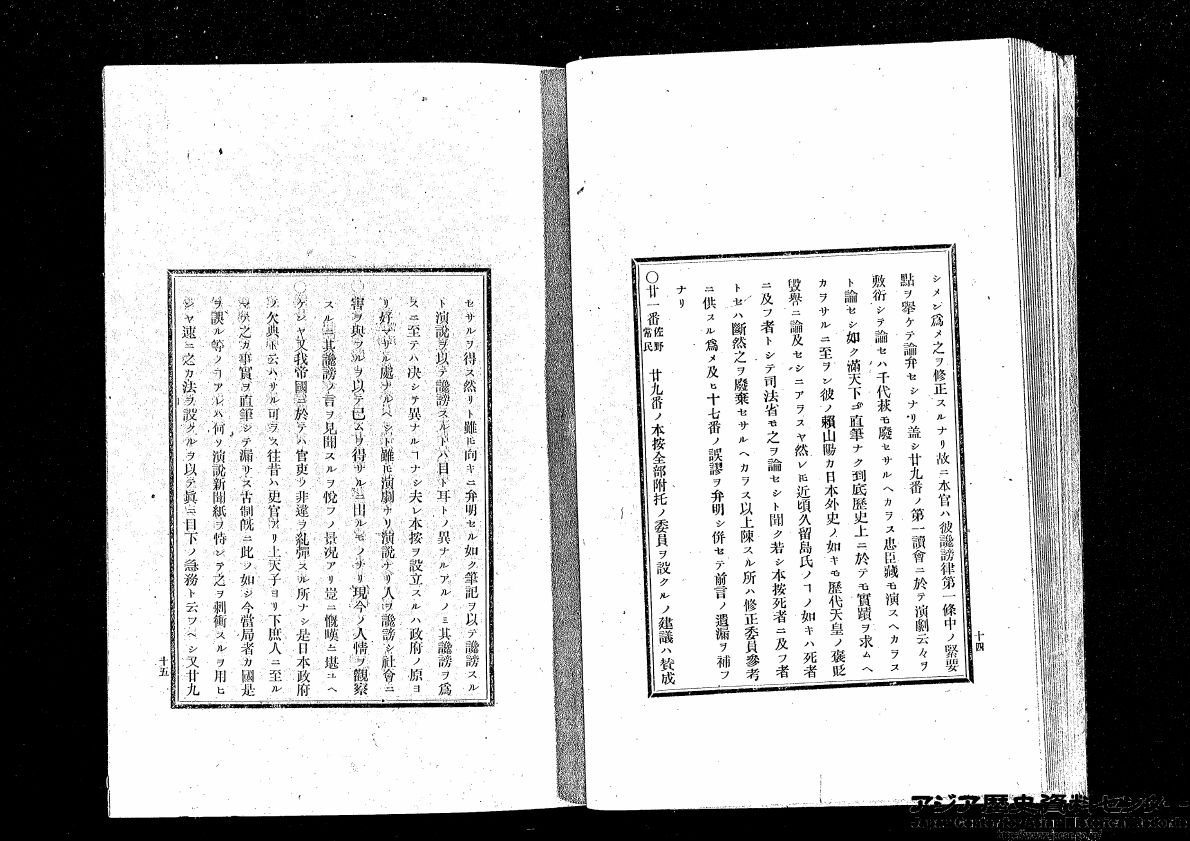 シメンカ爲メ之ヲ修正スルナリ故ニ本官ハ彼讒謗律第一條中ノ緊要
點ヲ擧ケテ論弁セシナリ盖シ廿九番ノ第一讀會ニ於テ演劇云々ヲ
敷衍シテ論セハ千代萩モ廢セサルヘカラス忠臣藏モ演スヘカラス
ト論セシ如ク滿天下ニ直筆ナク到底歷史上ニ於テモ實蹟ヲ求ムヘ
カラサルニ至ヲン彼ノ賴山陽カ日本外史ノ如キモ歷代天皇ノ褒貶
毀譽ニ論及セシニアラスヤ然レヒ近頃久留島氏ノヿノ如キハ死者
ニ及フ者トシテ司法省モ之ヲ論セシト聞ク若シ本按死者ニ及フ者
トセハ斷然之ヲ廢棄セサルヘカラス以上陳スル所ハ修正委員參考
ニ供スル爲メ及ヒ十七番ノ誤謬ヲ弁明シ併セテ前言ノ遺漏ヲ補フ
ナリ
〇廿一番佐野常民 廿九番ノ本按全部附托ノ委員ヲ設クルノ建議ハ贊成
十四
セサルヲ得ス然リト雖ヒ向キニ弁明セル如ク筆記ヲ以テ讒謗スル
ト演説ヲ以テ讒謗スルトハ目ト耳トノ異ナルアルノミ其讒謗ヲ爲
スニ至テハ决シテ異ナルヿナシ夫レ本按ヲ設立スルハ政府ノ原ヨ
リ好マサル處ナルヘシト雖ヒ演劇ナリ演説ナリ人ヲ讒謗シ社會ニ
害ヲ與フルヲ以テ已ムヲ得サルニ出ルモノナリ現今ノ人情ヲ觀察
スルニ其讒謗ノ言ヲ見聞スルヲ悅フノ景况アリ豈ニ慨嘆ニ堪ユヘ
ケンヤ又我帝國ニ於テハ官吏ノ非違ヲ糺彈スル所ナシ是日本政府
ノ欠典ト云ハサル可ラス往昔ハ史官アリ上天子ヨリ下庶人ニ至ル
マテ之カ事實ヲ直筆シテ漏サス古制旣ニ此ノ如シ今當局者カ國是
ヲ誤ル等ノヿアレハ何ソ演説新聞紙ヲ恃ンテ之ヲ刺衝スルヲ用ヒ
ンヤ速ニ之カ法ヲ設クルヲ以テ眞ニ目下ノ急務ト云フヘシ又廿九
十五
アジア歴史資料センター
Japan Center for Asian Historical Records
http://www.jacar.go.jp/